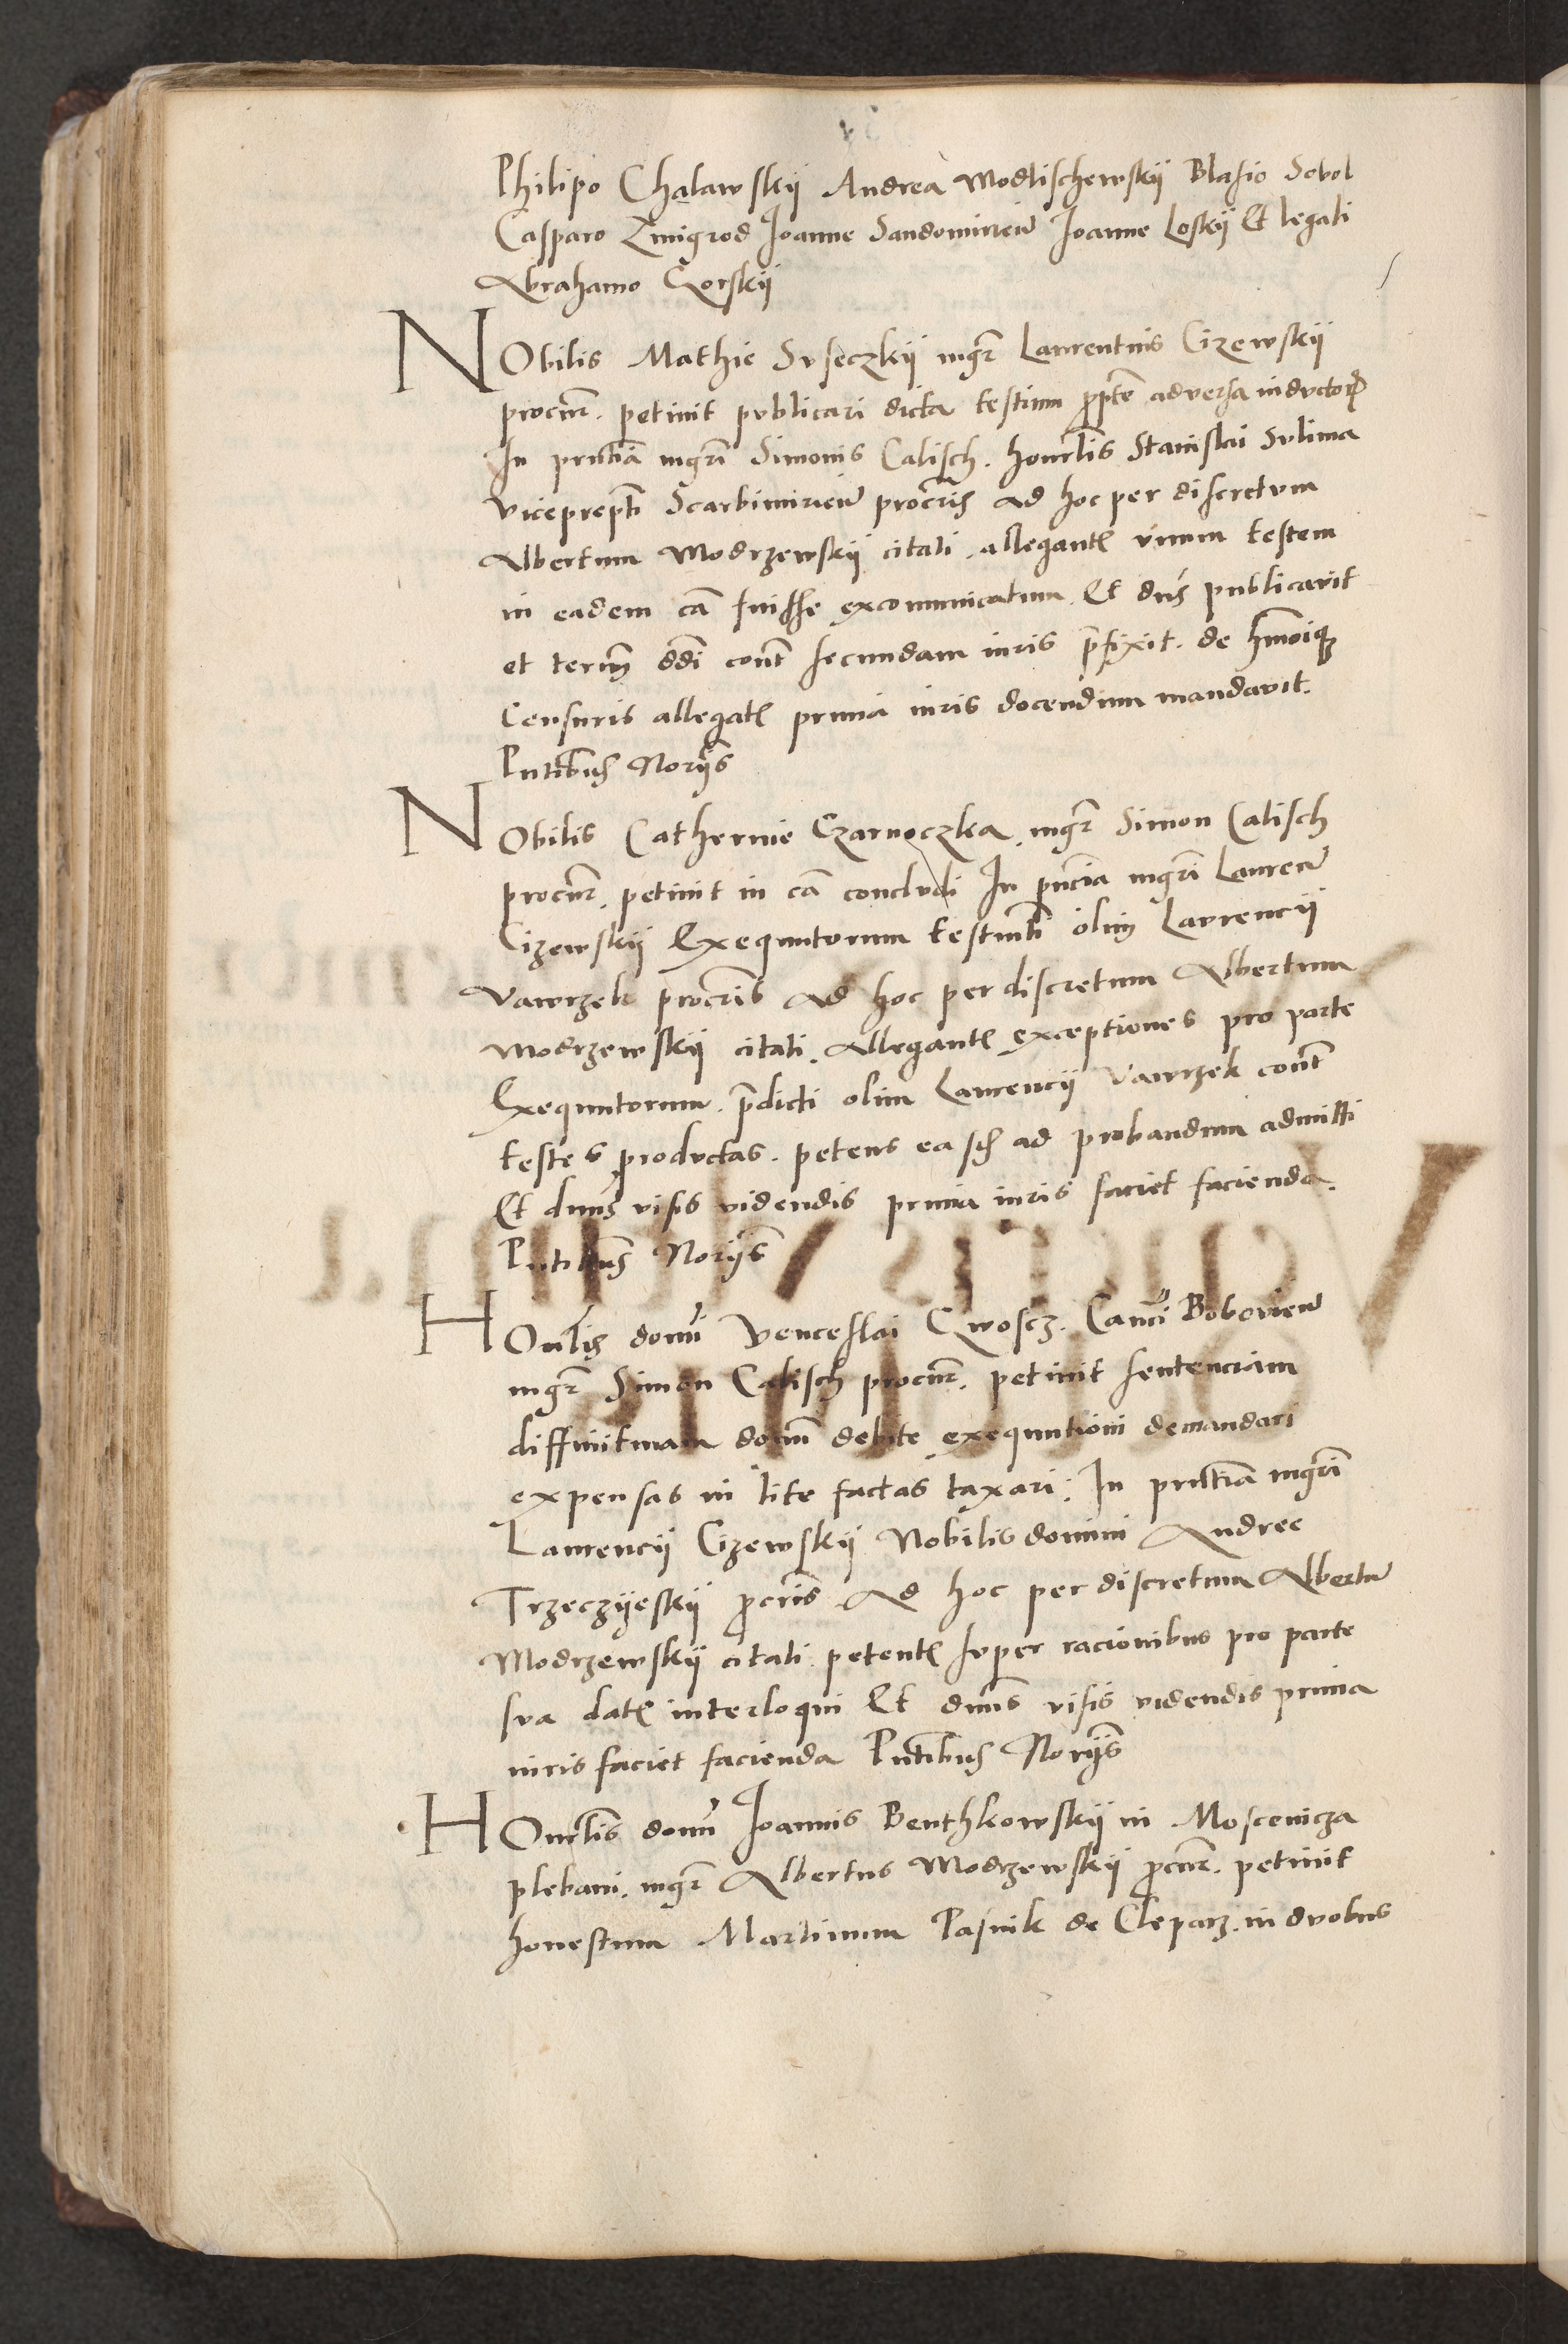 Philipo Chalawskij Andrea Modlischewskij Blasio Sobol
Casparo Zmigrod Joanne Sandomirien̄ Joanne Loskij Et legali
Abrahamo Gorskij
NObilis Mathie Suseczkij mgr̄ Laurentius Cizewskij
procur̄. petiuit publicari dicta testium ꝑ ꝑte aduersa inductoꝝ
In pn̄tia mgrī Simonis Calisch. honrlīs Stanislai Sulima
viceprepti Scarbimirien̄ procr̄is ad hoc per discretum
Albertum Modrzewskij citati. allegantꝭ vnum testem
in eadem cā fuisse excomunicatum Et dn̄s publicauit
et termū ddī cont̄ secundam iuris p̄fixit. de hmōiqꝫ
Censuris allegatꝭ prima iuris docendum mandauit.
Pn̄tibus Norijs
NObilis Catherine Czarnoczka. mgr̄ Simon Calisch
procur̄. petiuit in cā concludi In pn̄cia mgrī Lauren̄
Cizewskij Exequutorum testmti olim Laurencij
Vawrzek procr̄is ad hoc per discretum Albertum
Modrzewskij citati. allegantꝭ exceptiones pro parte
Exequutorum. p̄dicti olim Laurencij Vawrzek cont̄
testes productas. petens eas ad probandum admitti
Et dn̄s visis videndis prima iuris faciet facienda.
Pn̄tibus Norijs
HOnrlīs domī Venceslai Gwoscz. Canci Bobovien̄
mgr̄ Simon Calisch procur̄. petiuit sentenciam
diffinitiuam domī debite exequutioni demandari
expensas in lite factas taxari. In pn̄tia mgrī
Laurencij Cizewskij Nobilis domini Andree
Trzeczyeskij procr̄is ad hoc per discretum Albertū
Modrzewskij citati petentꝭ super racionibus pro parte
sua datꝭ interloqui Et dn̄s visis videndis prima
iuris faciet facienda Pn̄tibus Norijs
HOnrlīs domī Joannis Benthkowskij in Moscenicza
plebani. mgr̄ Albertus Modrzewskij procur̄. petiuit
honestum Martinum Pasnik de Cleparz. in duobus